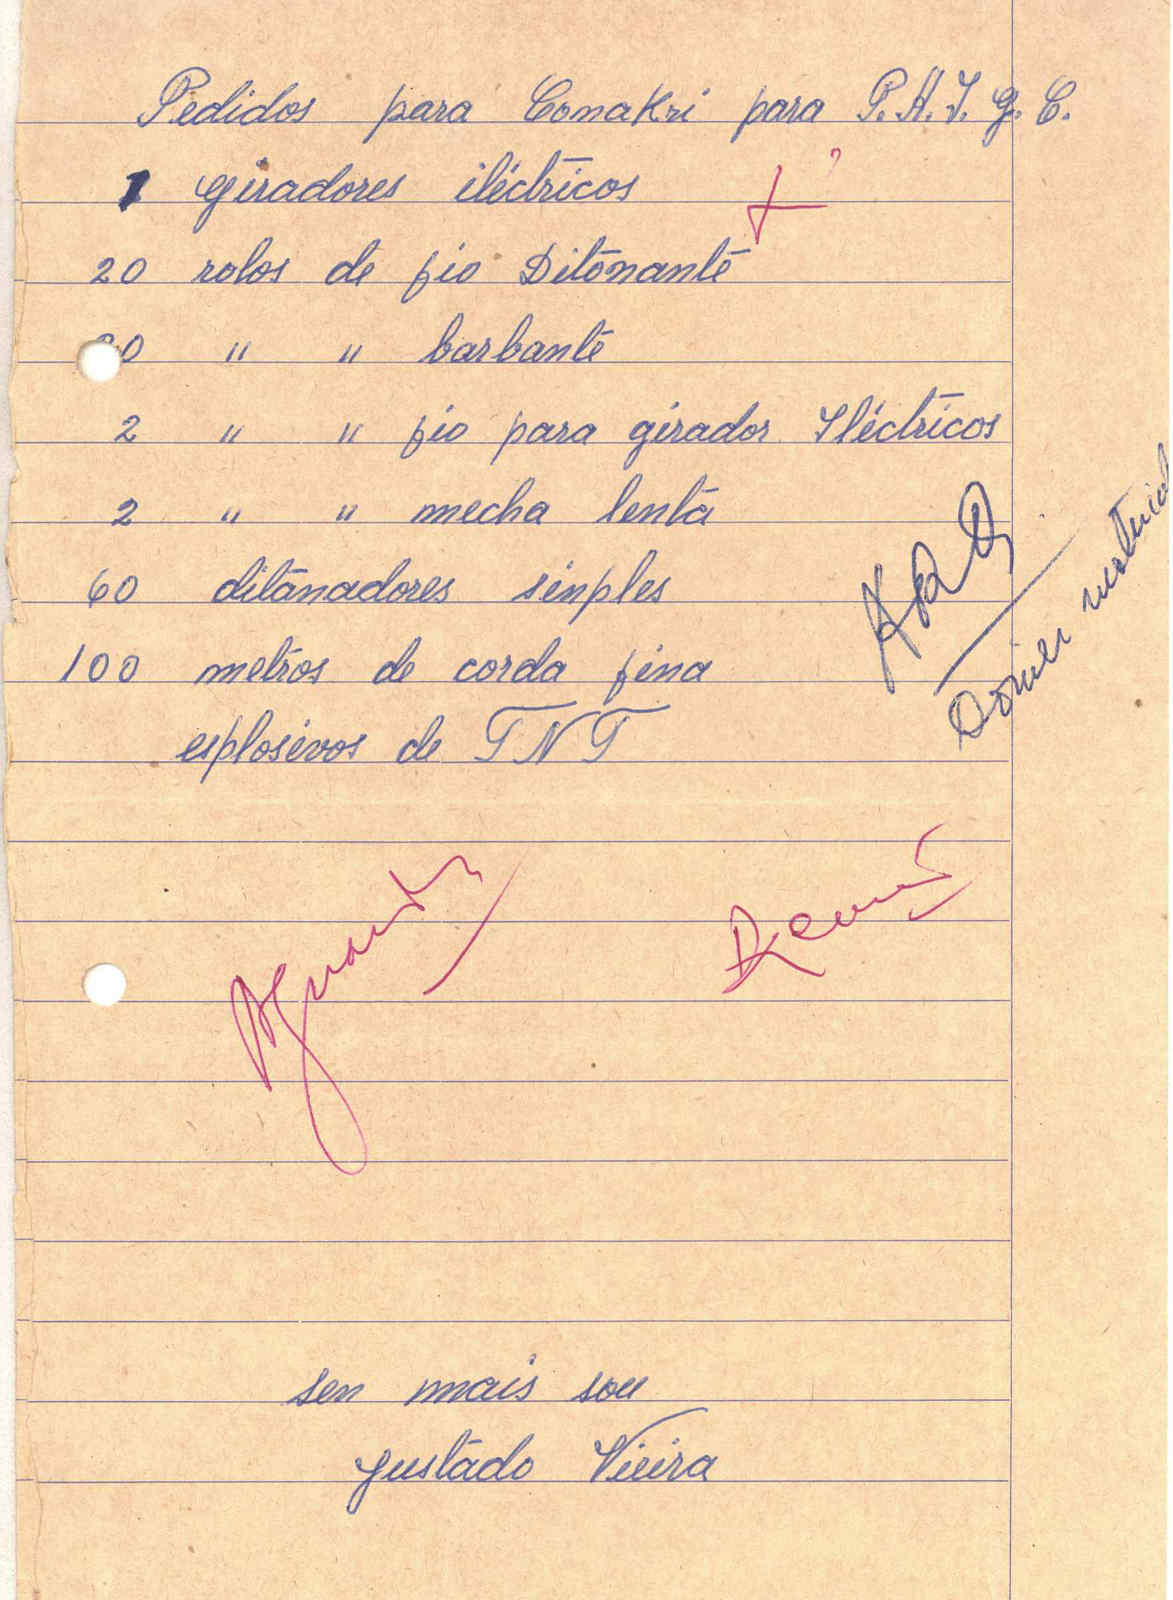 Pedidos para Conakri para P.A.I.G.C.
1 giradores iléctricos
20 rolos de fio Ditonante
20 " " barbante
2 " " fio para girador Iléctricos
2 " " mecha lenta
60 ditanadores sinples
100 metros de corda fina
esplosivos de TNT
material
sen mais sou
gustado Vieira